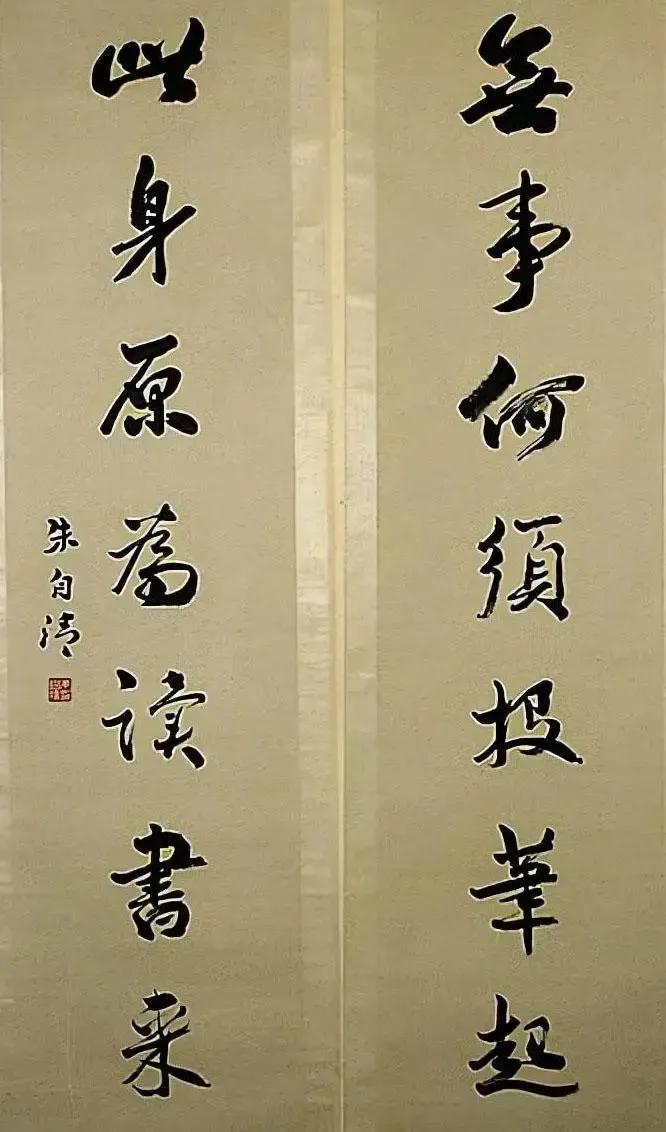 無事何須投筆起
此身原為读書来
朱自清